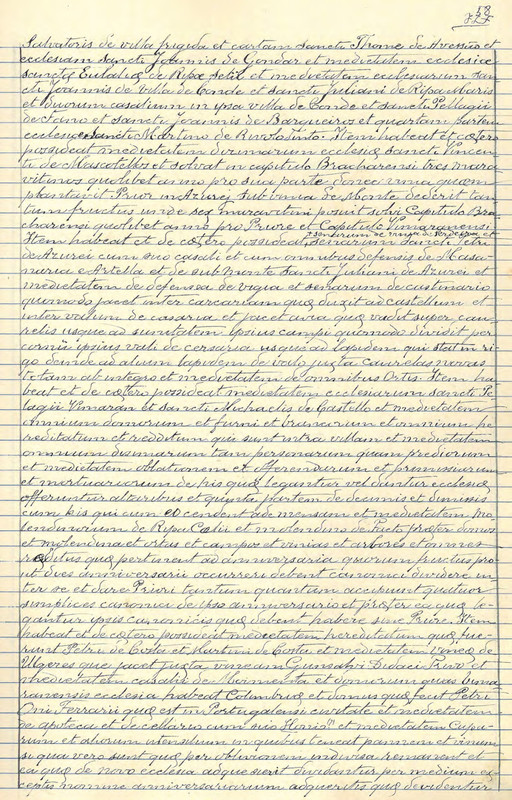 58
Salvatoris de villa frigida et cartam sancti Thome de Avessno et
ecclesiam sancti Joannis de Gondar et medietatem ecclesiæ
sanctæ Eulaliæ de Ripæ Selii et medietatem ecclesiarum san
cti Joannis de Villa de Conde et sancti Juliani de Ripa Maris
et duorum casalium in ipsa villa de Conde et sancti Pellagii
de Fano et sancti Joannis de Barqueiros et quartam partem
ecclesiæ sancti Martino de Rivolo tinto. Item habeat et cætero
possideat medietatem dicimarum ecclesiæ sancti Vincen
ti de Mascotellos et solvat in capitulo Bracharensi tres mara
vitinos quolibet anno pro sua parte donec vinia quam
plantavit Prior in Azurei sub vinia de Monte dederit tan
tum fructus unde sex maravitini posuit solvi Capitulo Bra
charensi quolibet anno pro Priore et Capitulo Vimaranensi
Item habeat et de cætero possideat, senarium sancti Petri
de Azurei cum suo casali et cum omnibus defensis de Masa
naria e Artella et de sub Monte sancti Juliani de Azurei et
medietatem de defensa de vigua et senarum de custinario
quomodo jacet inter carcariam quæ duxit ad castellum et
inter valium de casaria et jacet avia quæ vadit super cau
relis usque ad sumitatem ipsius campi quomodo dividit per
cornu ipsius vali de cersaria usque ad lapidem qui stat in ri
go deinde ad alium lapidem de valo juxta caurelas novas
totam ab integro et medietatem de omnibus Ortis. Item ha
beat et de cætero possideat medietatem ecclesiarum sancti Pe
lagii Vimaran et sancti Michaelis de Castello et medietatem
omnium domorum et furni et trucarum et omnium he
reditatum et reddituum qui sunt intra villam et medietatem
omnium disimarum tam personarum quam prediorum
et medietatem oblationem et offerendarum et primissiarum
et mortuariorum de his quæ legantur vel dantur ecclesiæ
offeruntur altaribus et quinta partem de decumis et dimisis
cum his qui cum eo cendent ad mensam et medietatem mo
lendinorum de Ripa Calii et molendino de Picto præter domos
et molendina et ortus et campos et vinias et arbores et omnes
reditus quæ pertinent ad anniversaria quorum fructus pro
ut dies anniversarii occurreri debent canonici dividere in
ter se et dare Priori tantum quantum accipiunt quatuor
simplices canonici de ipso anniversario et præter ea quæ le
gantur ipsis canonicis quæ debent habere sine Priore. Item
habeat et de cætero possideat medietatem hereditatum quæ fue
runt Petri de Costu et Martini de Costu et medietatem vineæ de
Ulgeres quæ jacet juxta vineam Gunsalvi Didaci Pivo et
medietatem casalis de Moimenta et domorum quas Vima
ranensis ecclesia habeat Columbriæ et domus quæ fecit Petri
Oni Ferrarii quæ est in Portugalensi civitate et medietatem
de apoteca et de cellario cum suo Horrio et medietatem Cupa
rum et aliorum utensilium in quibus teneat pannem et vinum
si qua vero sunt quæ per oblivionem indivisa remanent et
ea quæ de novo ecclesia adquesierit dividantur per medium ex
ceptis nomine anniversariorum adquesitis quæ dividentur